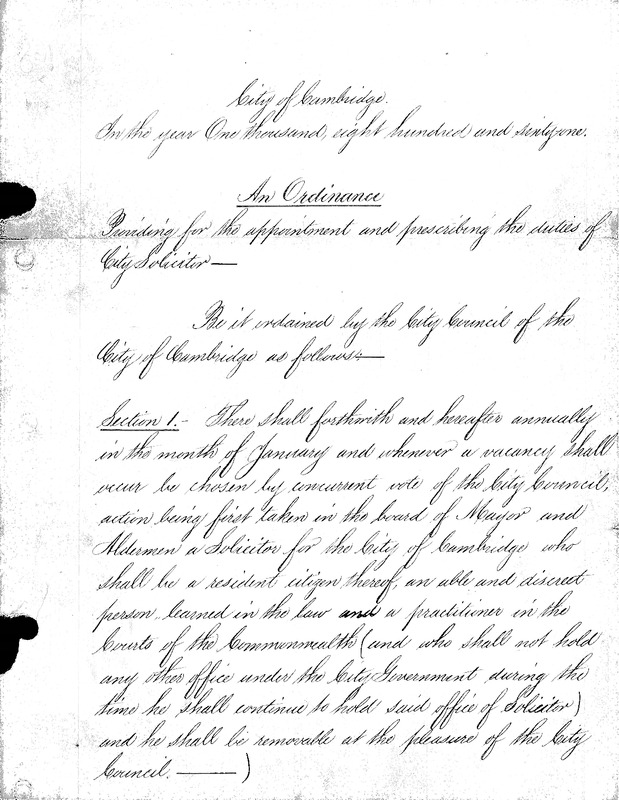 City of Cambridge.
In the year One thousand, eight hundred and sixty one.
An Ordinance
Providing for the appointment and prescribing the duties of
City Solicitor —
Be it ordained by the City Council of the
City of Cambridge as follows: —
Section 1. - There shall forthwith and hereafter annually
in the month of January and whenever a vacancy shall
occur be chosen by concurrent vote of the City Council,
action being first taken in the board of Mayor and
Aldermen a Solicitor for the City of Cambridge who
shall be a resident citizen thereof, an able and discreet
person, learned in the law and a practitioner in the
Courts of the Commonwealth (and who shall not hold
any other office under the City Government during the
time he shall continue to hold said office of Solicitor)
and he shall be removable at the pleasure of the City
Council. — )